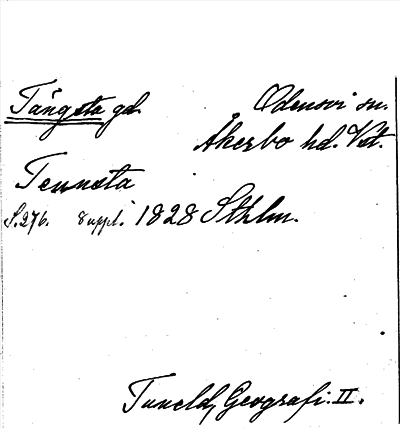 Tängsta gd. Odensvi sn.
Åkerbo hd. Vstl.
Tennsta
S. 276. 8 uppl. 1828 Sthlm.
Tuneld, Geografi. II.